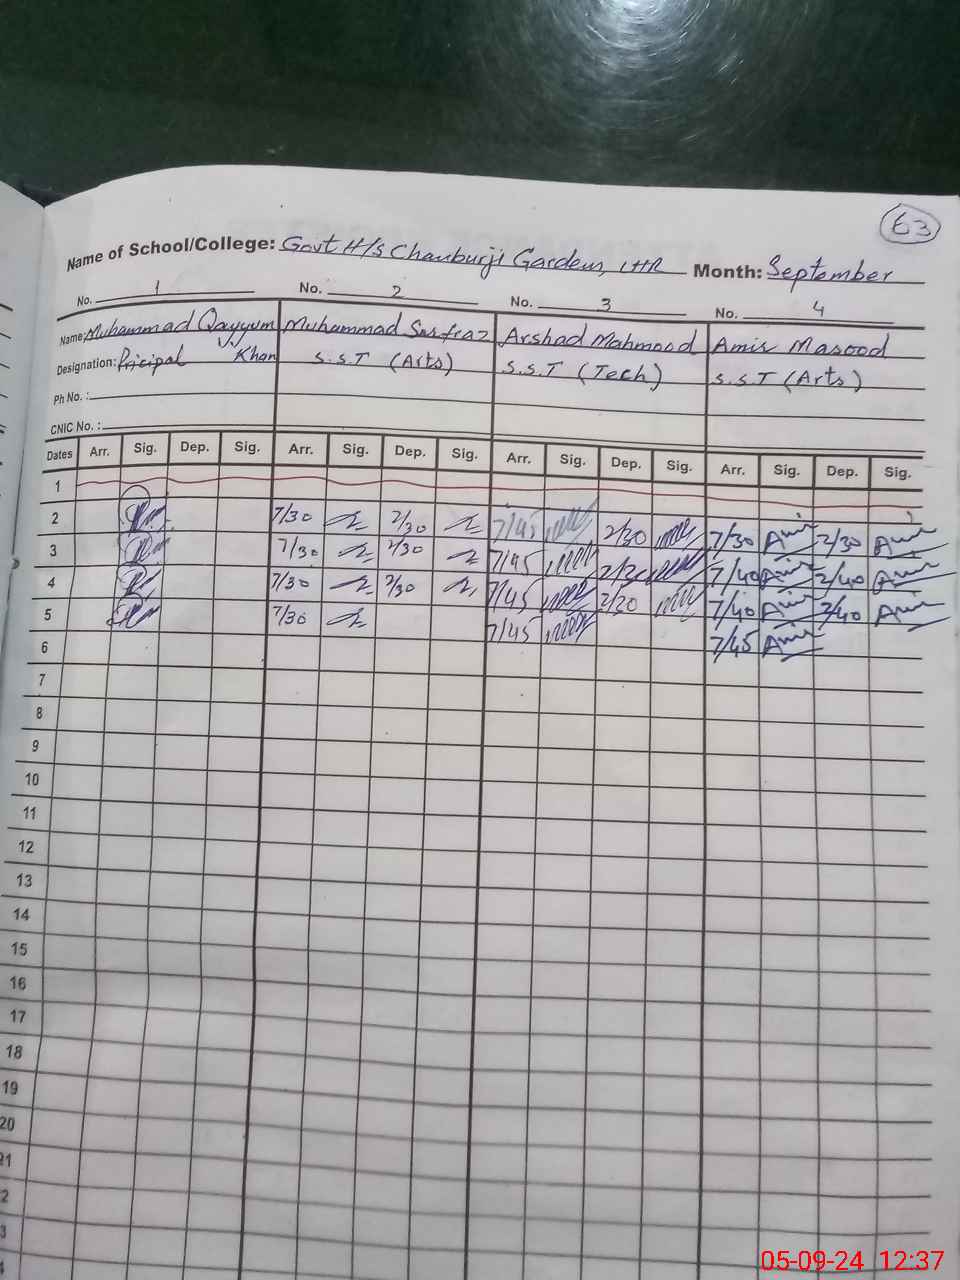 63
Name of School/College: Govt H/S Chauburji Gardens, LHR Month: September
No. 1 No. 2 No. 3 No. 4
Name: Muhammad Qayyum Muhammad Sarfraz Arshad Mahmood Amir Masood
Designation: Pricipal Khan S.S.T (Arts) S.S.T (Tech) S.S.T (Arts)
Ph No. :
CNIC No. :
Dates Arr. Sig. Dep. Sig. Arr. Sig. Dep. Sig. Arr. Sig. Dep. Sig. Arr. Sig. Dep. Sig.
1
2 7/30 2/30 7/45 2/30 7/30 Amir 2/30 Amir
3 7/30 2/30 7/45 2/30 7/40 Amir 2/40 Amir
4 7/30 2/30 7/45 2/30 7/40 Amir 2/40 Amir
5 7/30 7/45 7/45 Amir
6
7
8
9
10
11
12
13
14
15
16
17
18
19
20
21
2
3
05-09-24 12:37